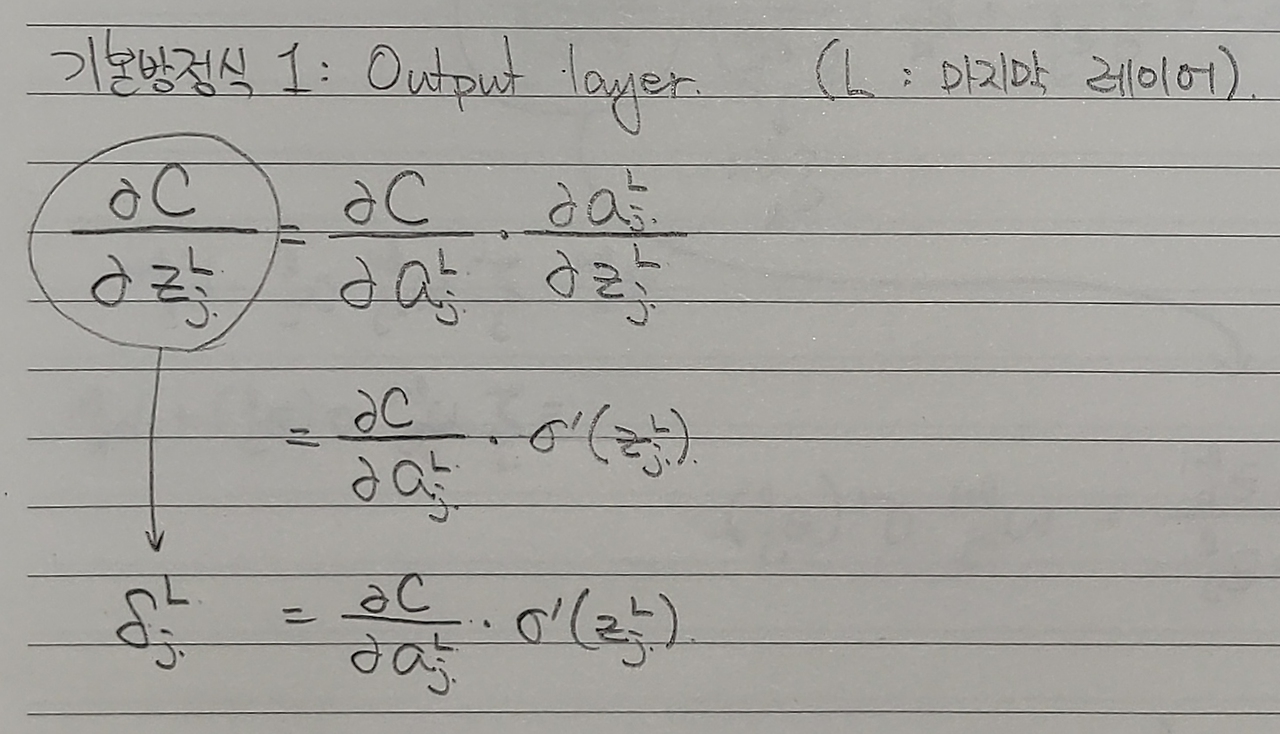 기본방정식 1: Output layer. (L : 마지막 레이어).
∂C/∂z_j^L = ∂C/∂a_j^L · ∂a_j^L/∂z_j^L
= ∂C/∂a_j^L · σ'(z_j^L).
δ_j^L = ∂C/∂a_j^L · σ'(z_j^L).